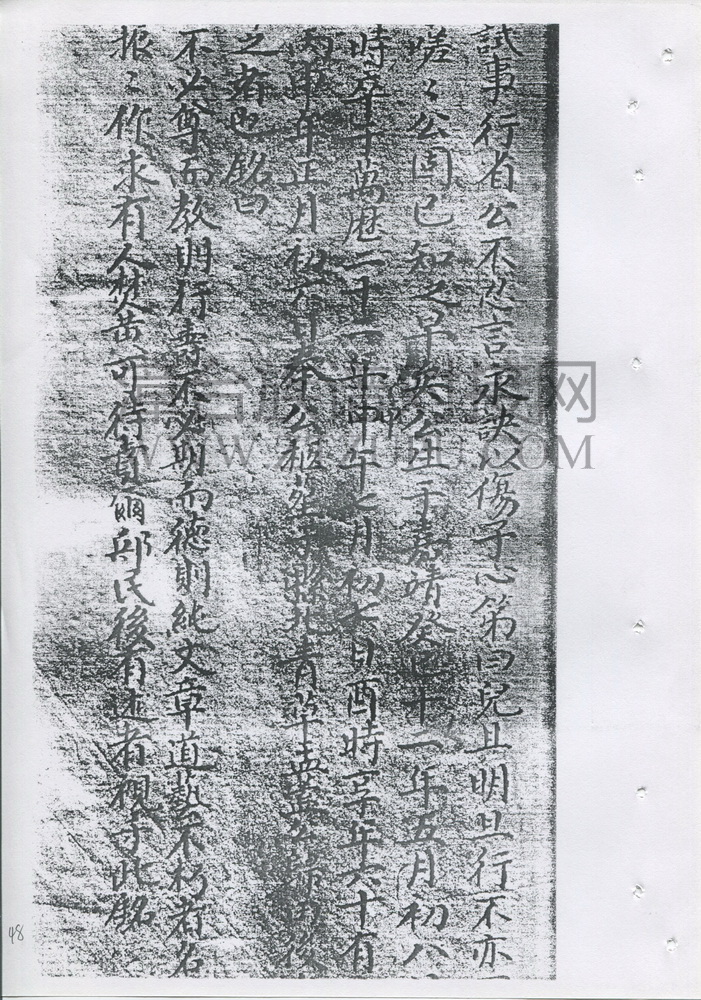 試事行省公不忍言永訣以傷予心第曰兒且明旦行不亦
嗟嗟公固已知之早矣公生于嘉靖癸巳十二年五月初八
時卒于萬歷二十二年甲午七月初七日酉時享年六十有
丙申年正月初六日奉公柩葬于縣北青草盂蓋公
之者也銘曰
不必尊而教則行壽不必期而德則純文章道藝不朽者名
振振作求有人焚黃可待賁爾鄭氏後有述者視于此銘
48
WWW. .COM